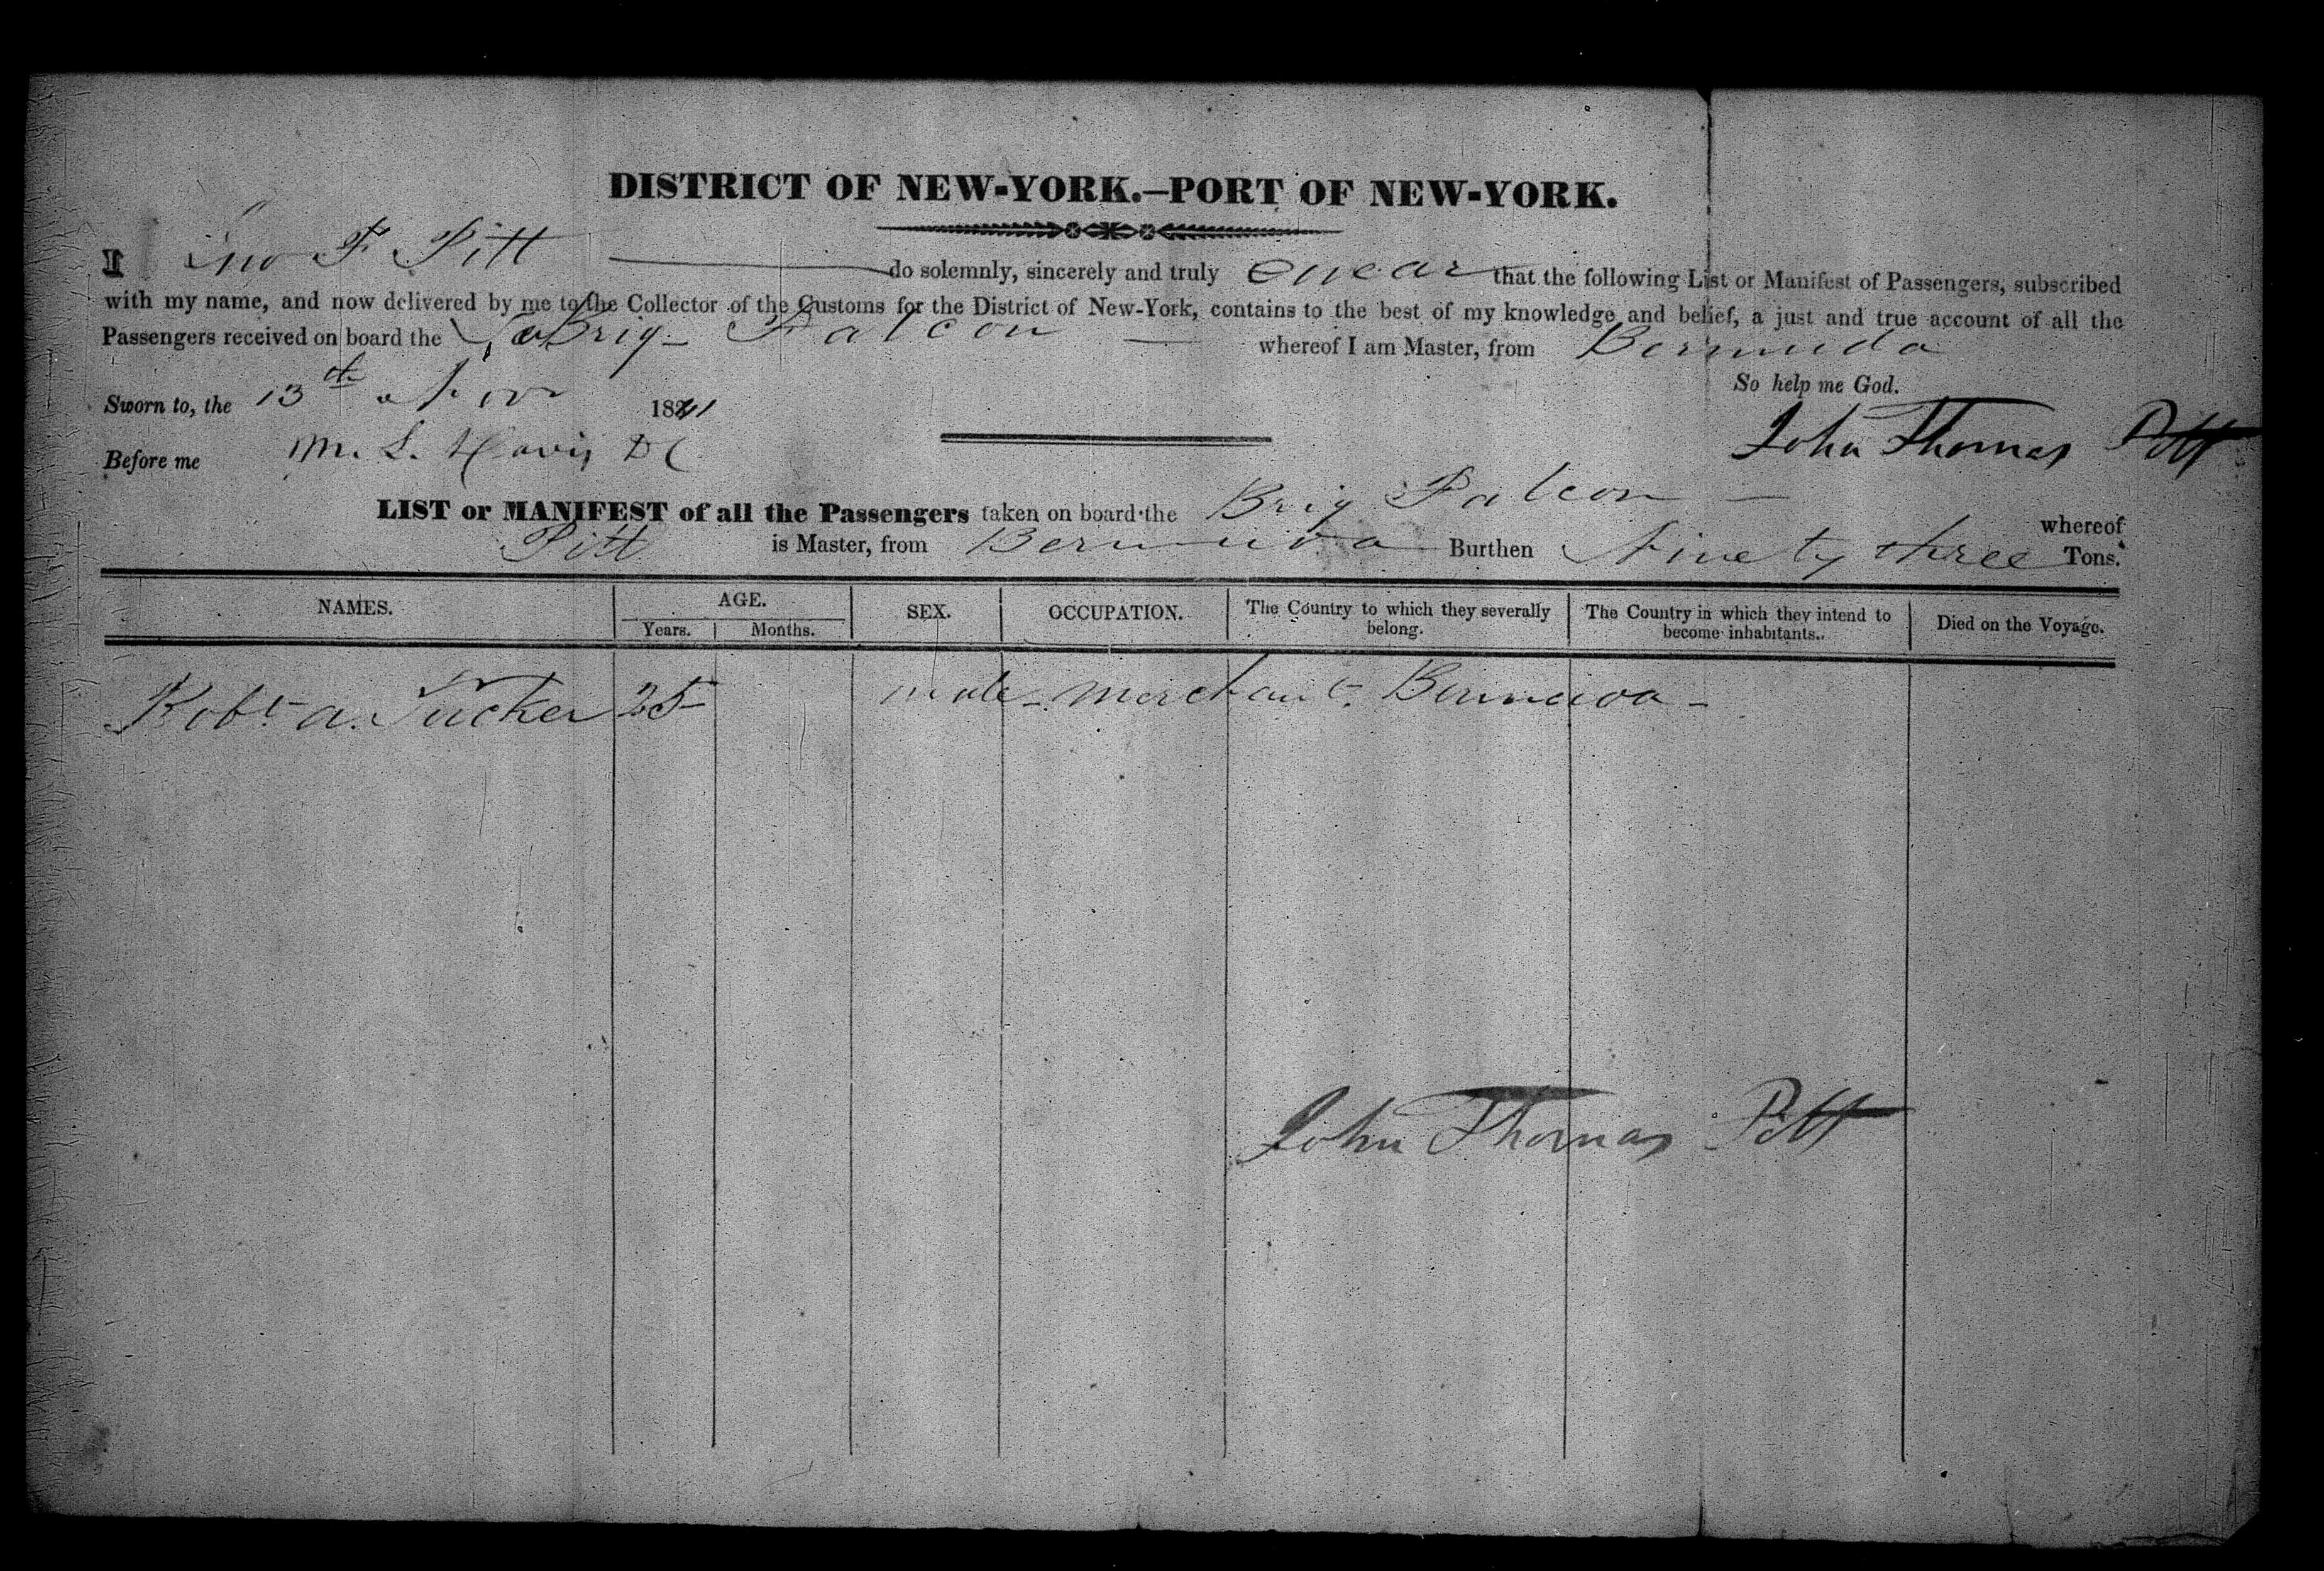 DISTRICT OF NEW-YORK.—PORT OF NEW-YORK.
I Jno T Pitt do solemnly, sincerely and truly swear that the following List or Manifest of Passengers, subscribed
with my name, and now delivered by me to the Collector of the Customs for the District of New-York, contains to the best of my knowledge and belief, a just and true account of all the
Passengers received on board the Brig Falcon whereof I am Master, from Bermuda
So help me God.
Sworn to, the 13th Nov 1841
John Thomas Pitt
Before me M. L. Davis DC
LIST or MANIFEST of all the Passengers taken on board the Brig Falcon whereof
Pitt is Master, from Bermuda Burthen Ninety three Tons.
NAMES. AGE. SEX. OCCUPATION. The Country to which they severally belong. The Country in which they intend to become inhabitants. Died on the Voyage.
Years. Months.
Robt A. Tucker 25 male merchant. Bermuda
John Thomas Pitt